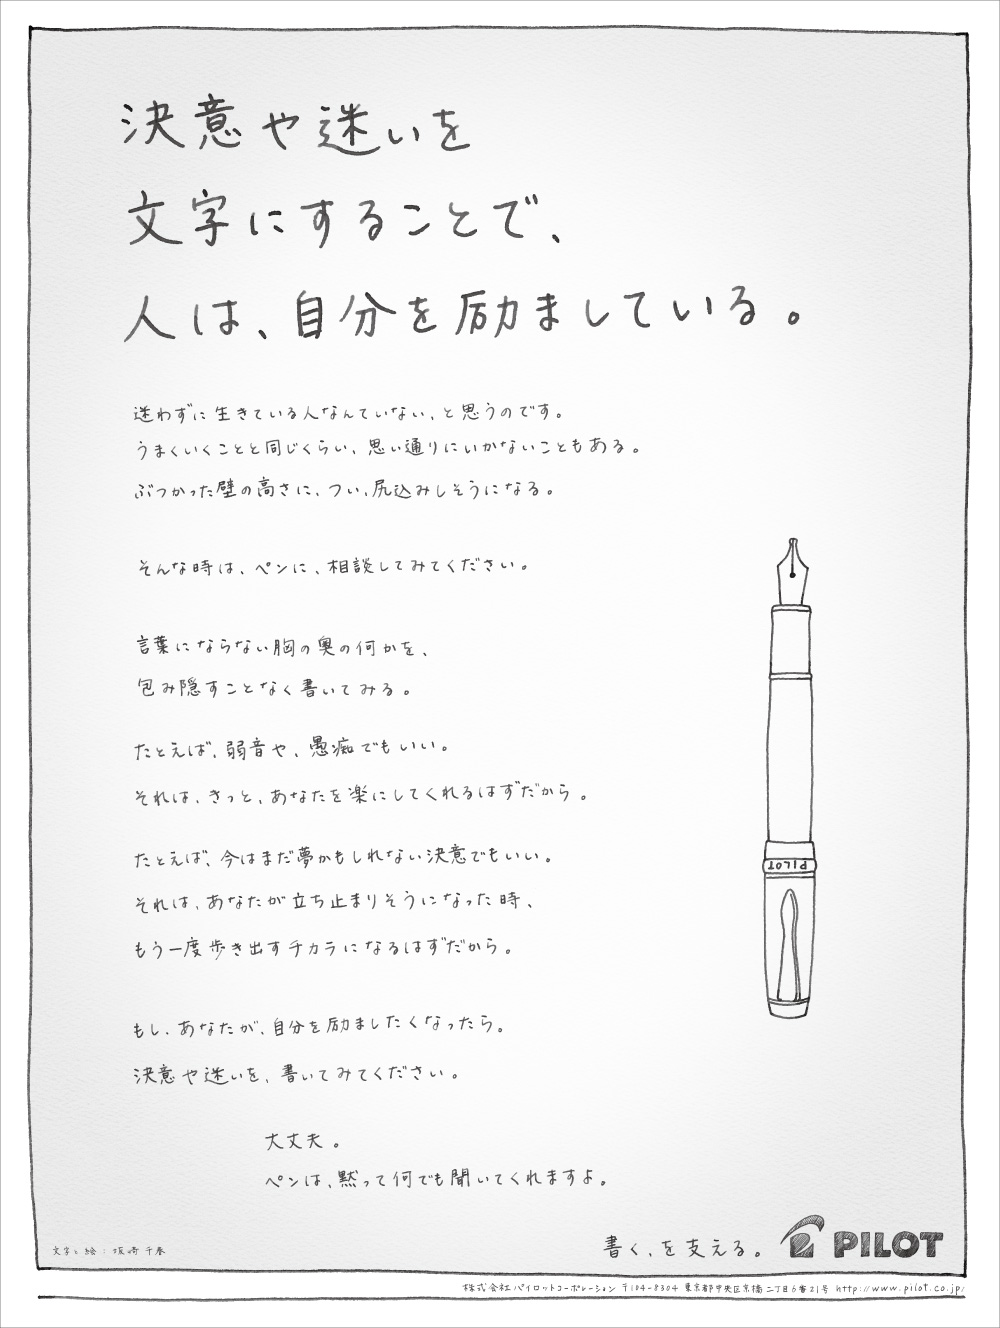 決意や迷いを
文字にすることで、
人は、自分を励ましている。
迷わずに生きている人なんていない、と思うのです。
うまくいくことと同じくらい、思い通りにいかないこともある。
ぶつかった壁の高さに、つい、尻込みしそうになる。
そんな時は、ペンに、相談してみてください。
言葉にならない胸の奥の何かを、
包み隠すことなく書いてみる。
たとえば、弱音や、愚痴でもいい。
それは、きっと、あなたを楽にしてくれるはずだから。
たとえば、今はまだ夢かもしれない決意でもいい。
それは、あなたが立ち止まりそうになった時、
もう一度歩き出すチカラになるはずだから。
もし、あなたが、自分を励ましたくなったら。
決意や迷いを、書いてみてください。
大丈夫。
ペンは、黙って何でも聞いてくれますよ。
PILOT
文字と絵：坂崎千春
書く、を支える。 PILOT
株式会社パイロットコーポレーション 〒104-8304 東京都中央区京橋二丁目6番21号 http://www.pilot.co.jp/